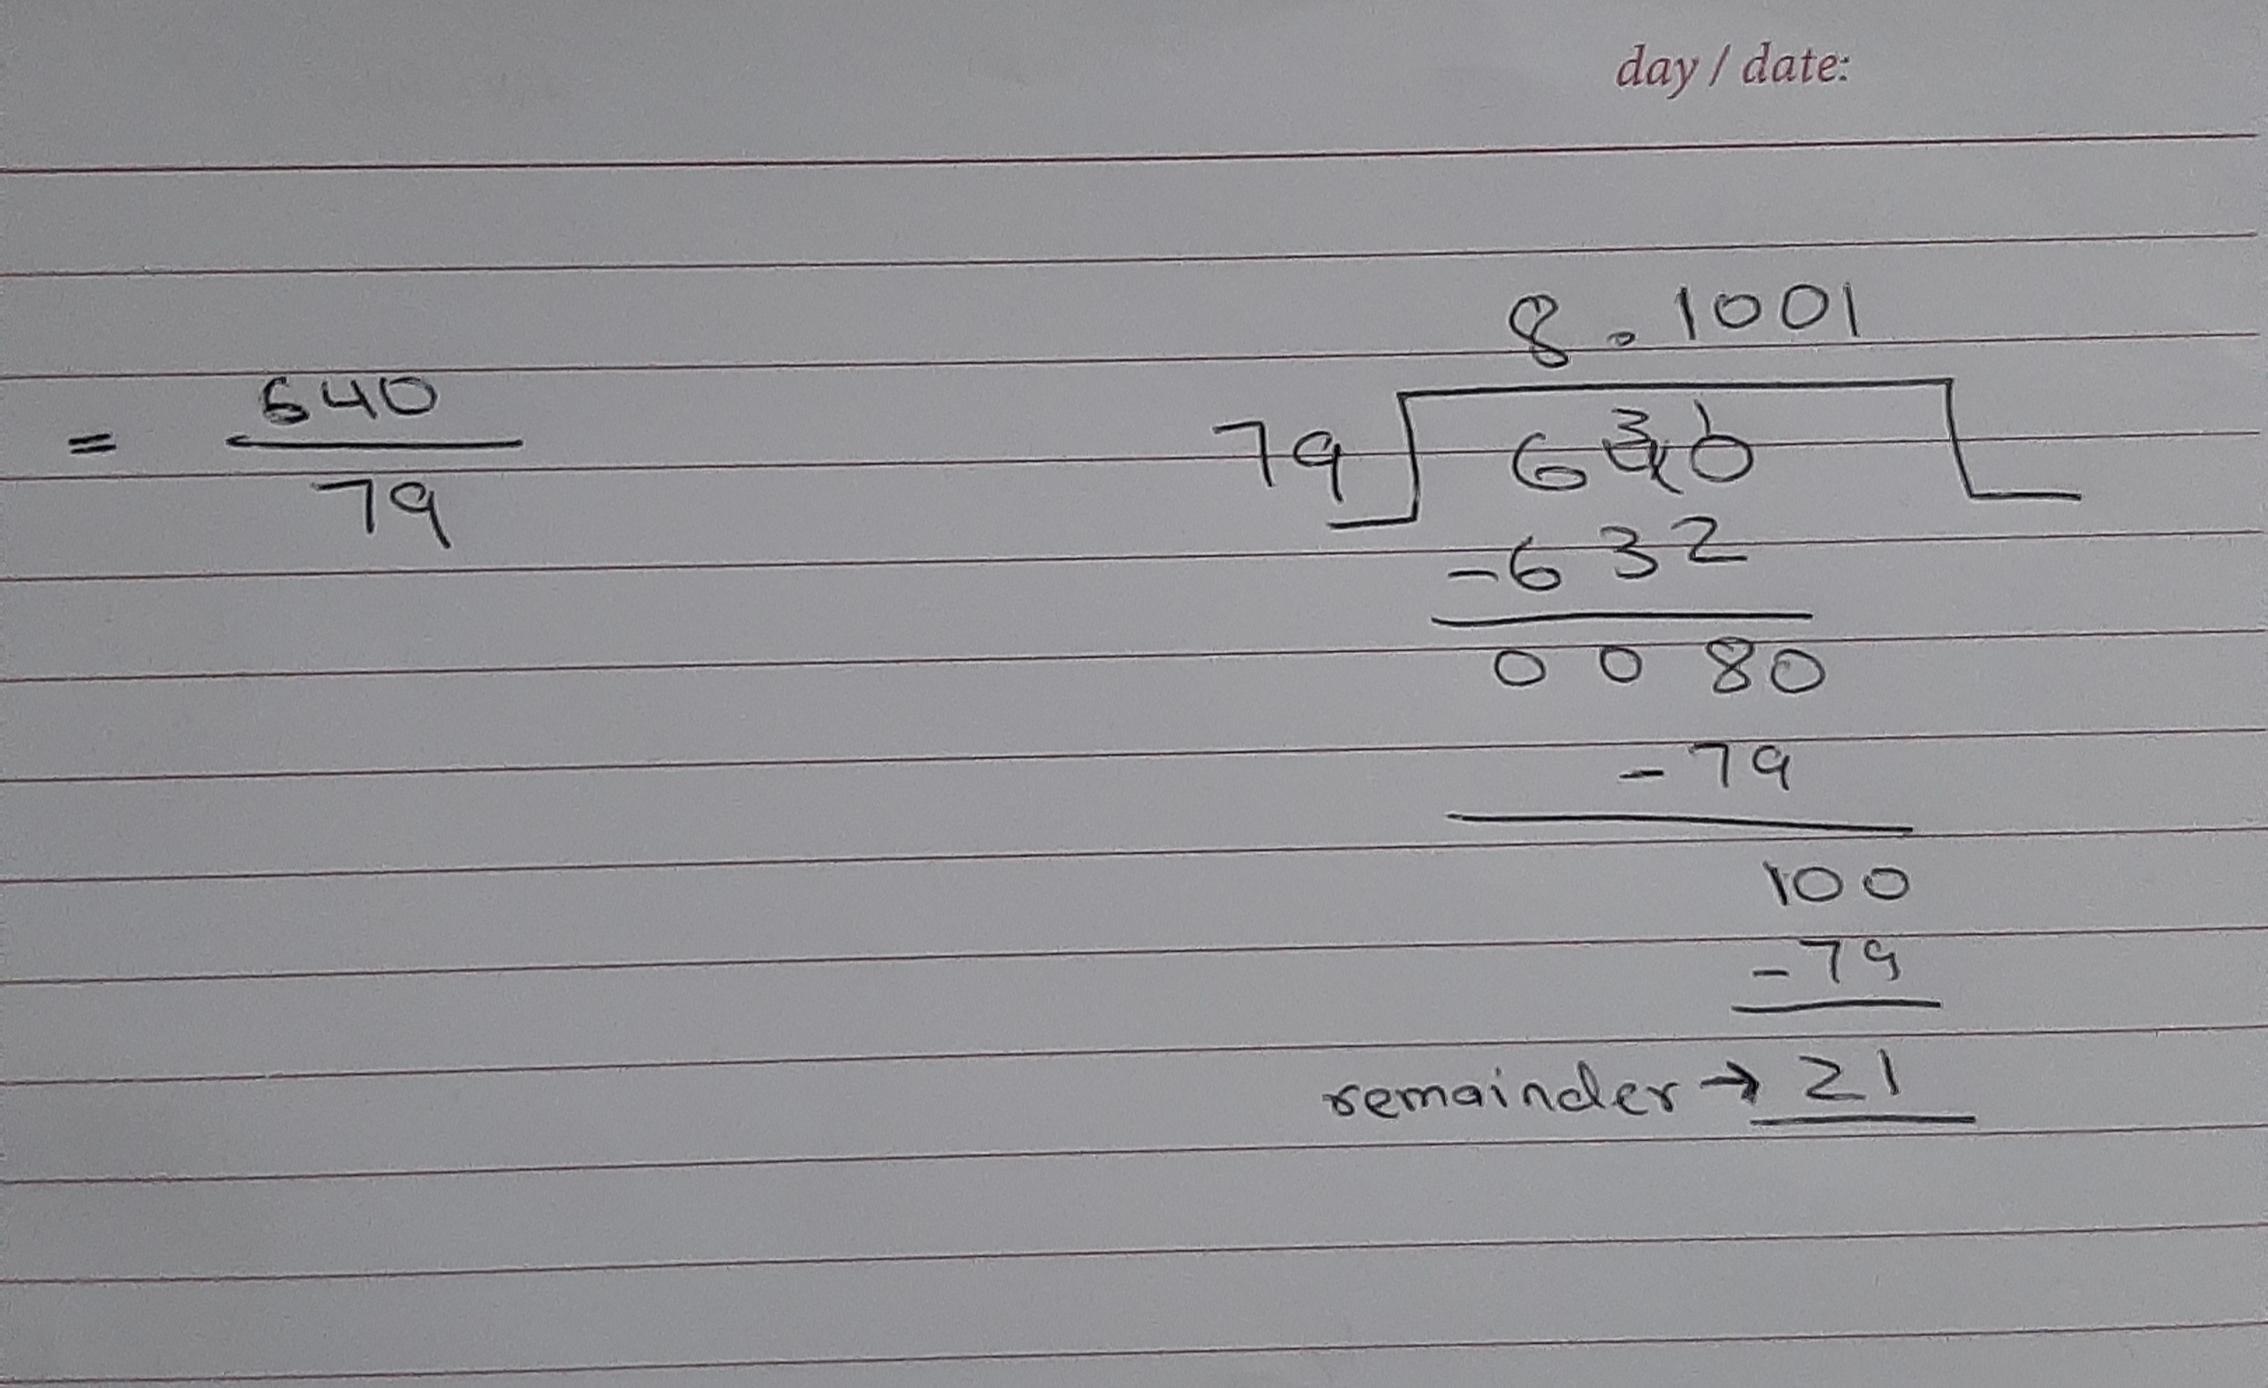 day / date:
8.1001
= 640/79
79 640
3 1
-632
0080
-79
100
-79
remainder → 21